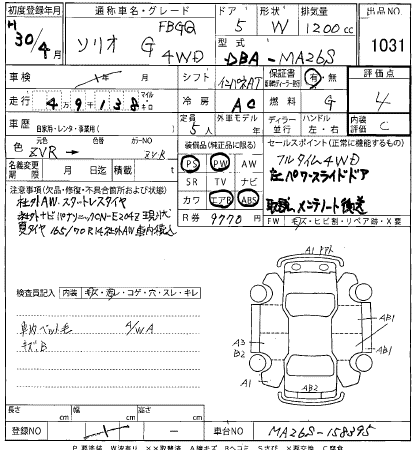 初度登録年月 通称車名・グレード ドア 形状 排気量 出品NO
H 30/4月 ソリオ G FBGQ 4WD 5 W 1200cc 1031
型式 DBA-MA26S
車検 年 月 シフト インパネAT 保証書 有・無 評価点
走行 49138 マイル キロ 冷房 AC 燃料 G 4
車歴 自家用・レンタ・事業用( ) 定員 5人 外車モデル ディーラー 並行 ハンドル 左・右 内装評価 C
色名 元色NO カラーNO ZVR → ZVR
名変期限 月 日迄 積載 t
装備品(純正品に限る) セールスポイント(正常に機能するもの)
PS PW AW フルタイム4WD
SR TV ナビ 左パワースライドドア
カワ エアB ABS 取説、メンテノート後送
R券 9770円 FW キズ・ヒビ割・リペア跡・X要
注意事項(欠品・修復・不具合箇所および状態)
社外AW.スタートレスタイヤ
社外ナビ パナソニックCN-E204Z 現状渡
夏タイヤ 165/70R14社外AW 車内積込
検査員記入 内装 キズ・汚レ・コゲ・穴・スレ・キレ
車内ペット毛 4/WA
キズB
A1 アト
A3
B2
A1
AB1
AB1
A1
AB2
長さ cm 幅 cm 高さ cm
登録NO ー 車台NO MA26S-158395
P 要塗装 W波有り XX取替済 A線キズ Bヘコミ Sサビ X要交換 C腐食